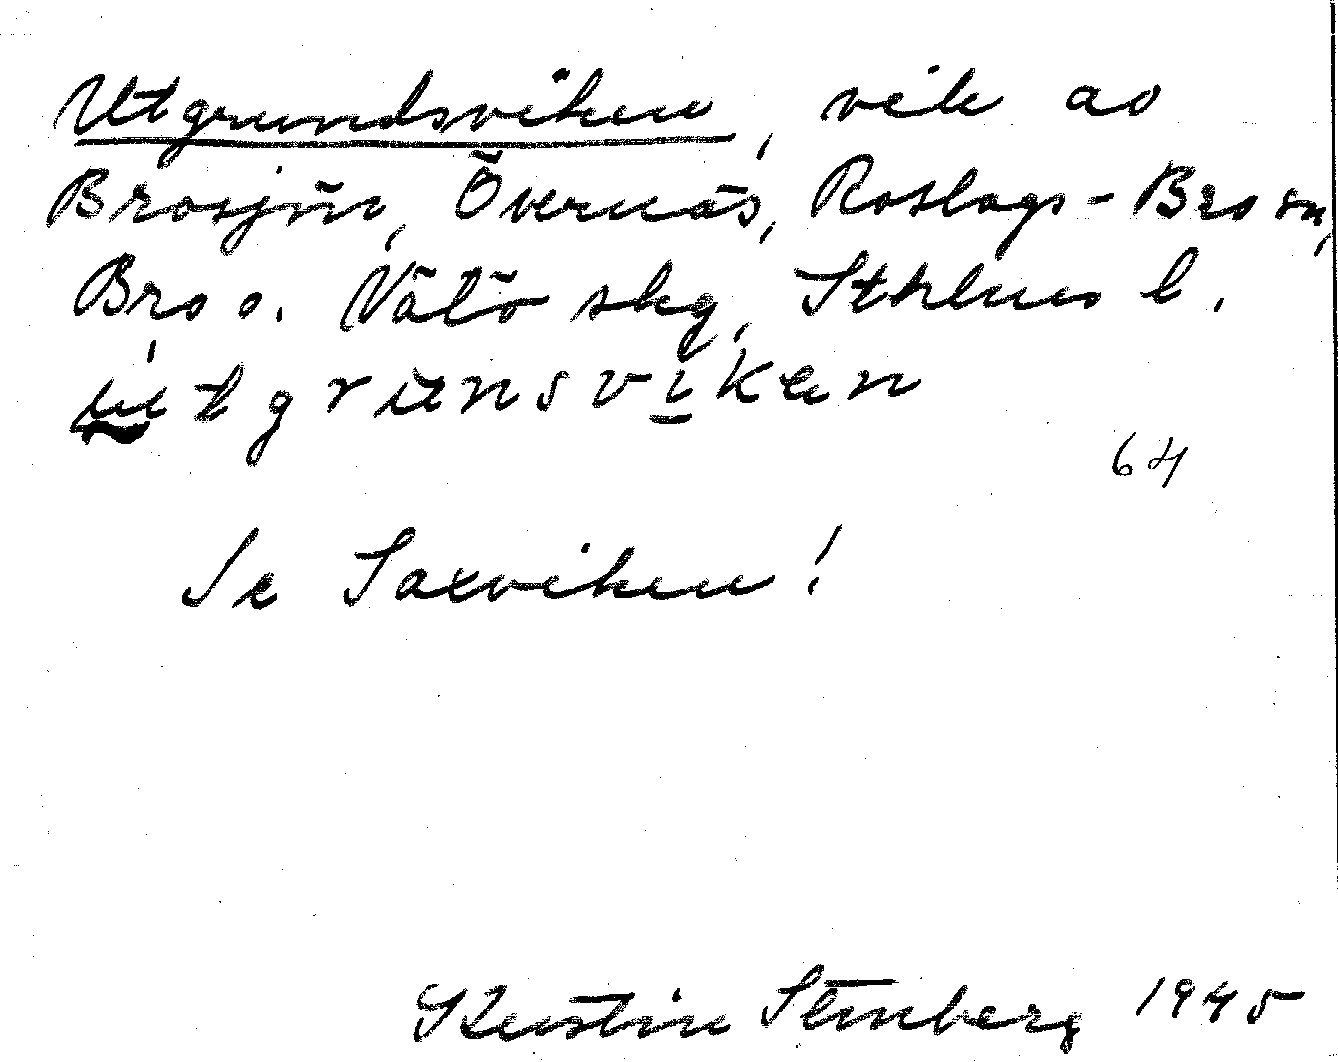 Utgrundsviken, vik av
Brosjön, Övernäs, Roslags-Bro sn,
Bro o. Vätö skg, Sthlms l.
utgrunsviken
64
Se Saxviken!
Kerstin Stenberg 1945